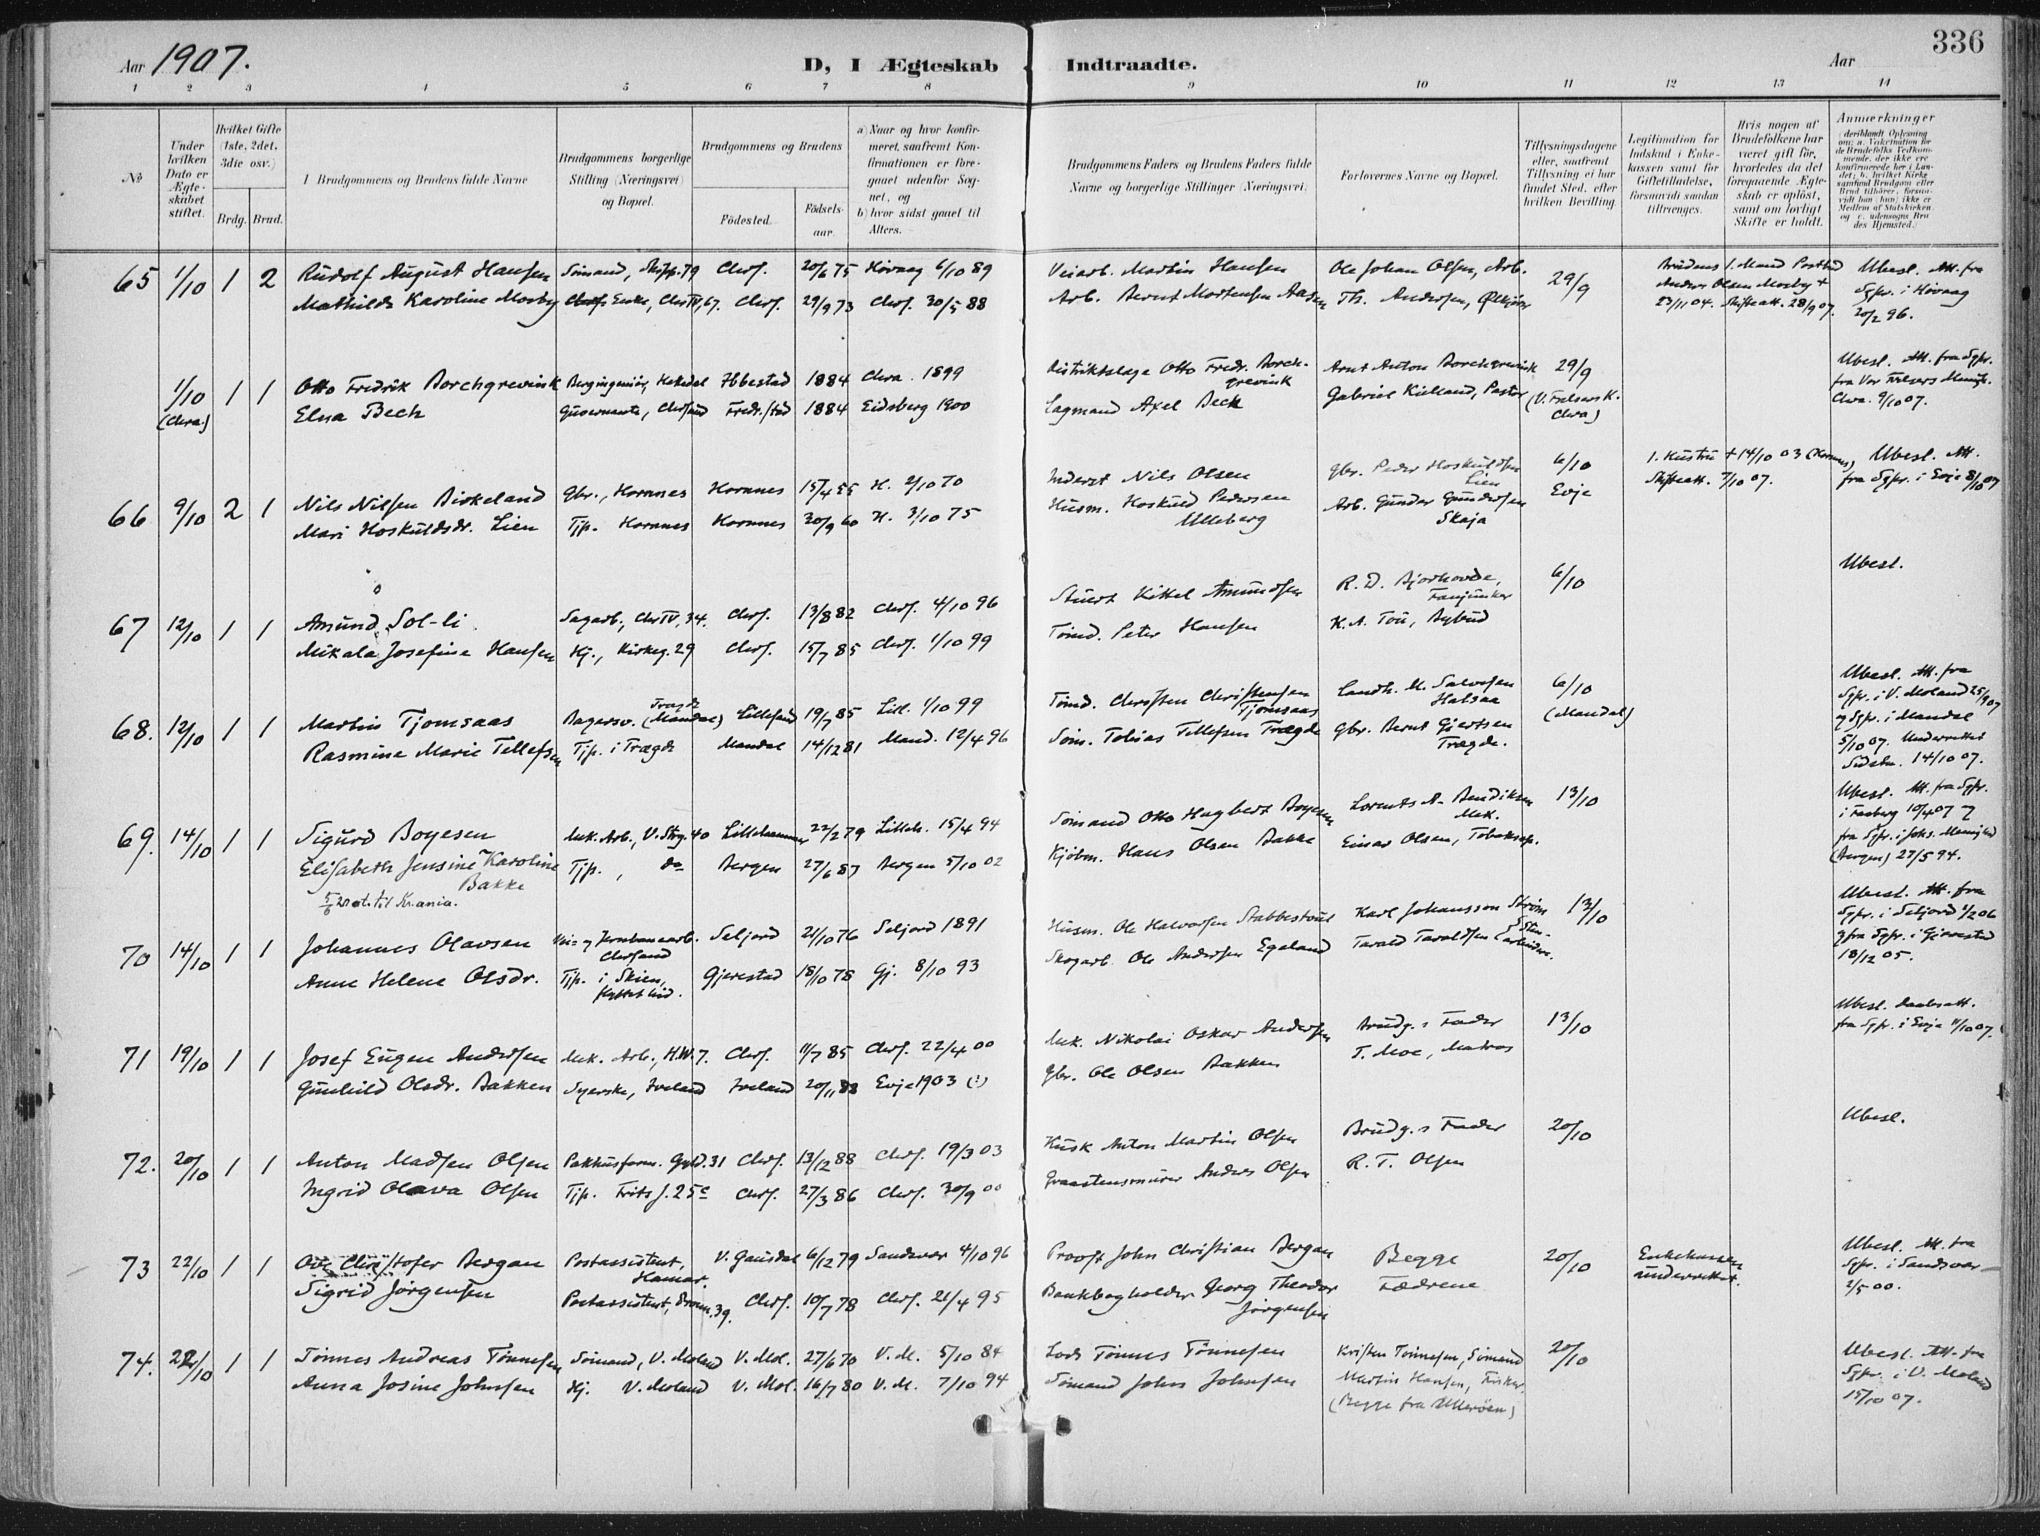 336
Aar 1907.
D, I Ægteskab Indtraadte.
Aar
1 2 3 4 5 6 7 8 9 10 11 12 13 14
No
Under hvilken Dato er Ægteskabet stiftet.
Hvilket Gifte (1ste, 2det, 3die osv.)
Brdg. Brud.
1 Brudgommens og Brudens fulde Navne
Brudgommens borgerlige Stilling (Næringsvei) og Bopæl.
Brudgommens og Brudens
Födested.
Födselsaar.
a) Naar og hvor konfirmeret, saafremt Konfirmationen er foregaaet udenfor Sognet, og
b) hvor sidst gaaet til Alters.
Brudgommens Faders og Brudens Faders fulde Navne og borgerlige Stillinger (Næringsvei)
Forlovernes Navne og Bopæl.
Tillysningsdagene eller, saafremt Tillysning ei har fundet Sted, efter hvilken Bevilling.
Legitimation for Indskud i Enkekassen samt for Giftetilladelse, forsaavidt saadan tiltrænges.
Hvis nogen af Brudefolkene har været gift för, hvorledes da det foregaaende Ægteskab er oplöst, samt om lovligt Skifte er holdt.
Anmærkninger
(deriblandt Oplysning om: a. Vakcination for de Brudefolks Vedkommende, der ikke ere konfirmerede her i Landet; b. hvilket Kirkesamfund Brudgom eller Brud tilhörer, forsaavidt han (hun) ikke er Medlem af Statskirken, og c. udensogns Brudes Hjemsted.)
65 1/10 1 2 Rudolf August Hansen Sømand, Skipp. 79 Chrs. 20/6 75 Høvaag 6/10 89 Veiarb. Martin Hansen Ole Johan Olsen, Arb. 29/9 Brudens 1. Mand Postbud Ubesl. Att. fra
Mathilde Karoline Mosby Enke, Chr IV, 67. Chrs. 29/9 73 Chrs. 30/5 88 Arb. Bernt Mortensen Aasen Th. Andersen, Ølkjører Anders Olsen Mosby + Sgpr. i Høvaag
23/11 04. Skifteatt. 28/9 07. 20/2 96.
1/10 1 1 Otto Fredrik Borchgrevink Bergingeniør, Ibbestad 1884 Chra. 1899 Distriktslæge Otto Fredr. Borchgrevink Arnt Anton Borchgrevink 29/9 Ubesl. Att. fra Sgpr.
(Chra.) Elna Bech Guvernante, Chrsand Fredr.stad 1884 Eidsberg 1900 Lagmand Axel Beck Gabriel Kielland, Pastor (V. Frelsers K. Chra) fra Vor Frelsers Menigh.
Chra. 9/10 07.
66 9/10 2 1 Nils Nilsen Birkeland Gbr., Hornnes Hornnes 15/4 55 H. 2/10 70 Inderst Nils Olsen Gbr. Peder Hoskuldsen Lien 6/10 1. Hustru + 14/10 03 (Hornnes) Ubesl. Att.
Mari Hoskuldsdr. Lien Tjp. Hornnes Hornnes 30/9 60 H. 3/10 75 Husm. Hoskuld Pedersen Ulleberg Arb. Gunder Gundersen Skaja Evje Skifteatt. 7/10 07. fra Sgpr. i Evje 8/10 07
67 12/10 1 1 Amund Sol-li Sagarb., Chr IV, 34. Chrs. 13/8 82 Chrs. 4/10 96 Stuert Kittel Amundsen R. D. Bjorhovde, Fanjunker 6/10 Ubesl.
Mikala Josefine Hansen Hj., Kirkeg. 29 Chrs. 15/7 85 Chrs. 1/10 99 Tømd. Peter Hansen K. A. Tou, Bybud
68. 12/10 1 1 Martin Tjomsaas Bagersv. (Mandal) Lillesand 19/7 85 Lill. 1/10 99 Tømd. Christen Christensen Tjomsaas Landh. M. Salvesen Halsaa 6/10 Ubesl. Att. fra
Rasmine Marie Tellefsen Tjp. i Trægde Mandal 14/12 81 Mand. 12/4 96 Søm. Tobias Tellefsen Trægde Gbr. Bernt Giertsen Trægde. (Mandal) Sgpr. i V. Moland 25/9 07
og Sgpr. i Mandal
5/10 07. Underrettet
14/10 07.
69. 14/10 1 1 Sigurd Boyesen Mek. Arb., V. Strg. 40 Lillehammer 22/2 79 Lilleh. 15/4 94 Sømand Otto Hagbert Boyesen Lorents A. Bendiksen Mek. 13/10 Ubesl. Att. fra Sgpr.
Elisabeth Jensine Karoline Bakke Tjp., do Bergen 27/6 87 Bergen 5/10 02 Kjøbm. Hans Olsen Bakke Einar Olsen, Tobaksp. 10/4 07
5/6 20 at. til Kr.ania. fra Sgpr. i Joh. Menighed
(Bergen) 27/5 94.
70 14/10 1 1 Johannes Olavsen Vei- og Jernbanearb. Chrsand Seljord 21/10 76 Seljord 1891 Husm. Ole Halvorsen Stabbestøul Karl Johansson Strøm 13/10 Ubesl. Att. fra
Anne Helene Olsdr. Tjp. i Skien, Gjerestad 18/10 78 Gj. 8/10 93 Skogarb. Ole Andersen Egeland Tarald Taraldsen (Stenarbeidere. Sgpr. i Seljord 1/2 06
og fra Sgpr. i Gjerestad
18/12 05.
71 19/10 1 1 Josef Eugen Andersen Mek. Arb., H.W. 7. Chrs. 11/7 85 Chrs. 22/4 00 Mek. Nikolai Oskar Andersen Brudg.s Fader 13/10 Ubesl. Daabsatt.
Gunhild Olsdr. Bakken Syerske, Iveland Iveland 20/11 88 Evje 1903 (?) Gbr. Ole Olsen Bakken T. Moe, Matros fra Sgpr. i Evje 11/10 07.
72. 20/10 1 1 Anton Madsen Olsen Pakhusform. Gyld. 31 Chrs. 13/12 88 Chrs. 19/3 03 Kusk Anton Martin Olsen Brudg.s Fader 20/10 Ubesl.
Ingrid Olava Olsen Tjp. Frits J. 25c Chrs. 27/3 86 Chrs. 30/9 00 Graastensmurer Anders Olsen R. T. Olsen
73 22/10 1 1 Ove Christofer Bergan Postassistent, Hamar. V. Gausdal 6/12 79 Sandsvær 4/10 96 Provst John Christian Bergan Begge 20/10 Enkekassen Ubesl. Att. fra
Sigrid Jørgensen Postassistent, Dronn. 39. Chrs. 10/7 78 Chrs. 21/4 95 Bankbogholder Georg Theodor Jørgensen Fædrene underrettet. Sgpr. i Sandsvær
2/5 00.
74. 22/10 1 1 Tønnes Andreas Tønnesen Sømand, V. Moland V. Mol. 27/6 70 V. M. 5/10 84 Lods Tønnes Tønnesen Kristen Tønnesen, Sømand 20/10 Ubesl. Att. fra
Anna Josine Johnsen Hj. V. Moland V. Mol. 16/7 80 V. M. 7/10 94 Sømand John Johnsen Martin Hansen, Fisker. Sgpr. i V. Moland
(Begge fra Ullerøen) 15/10 07.